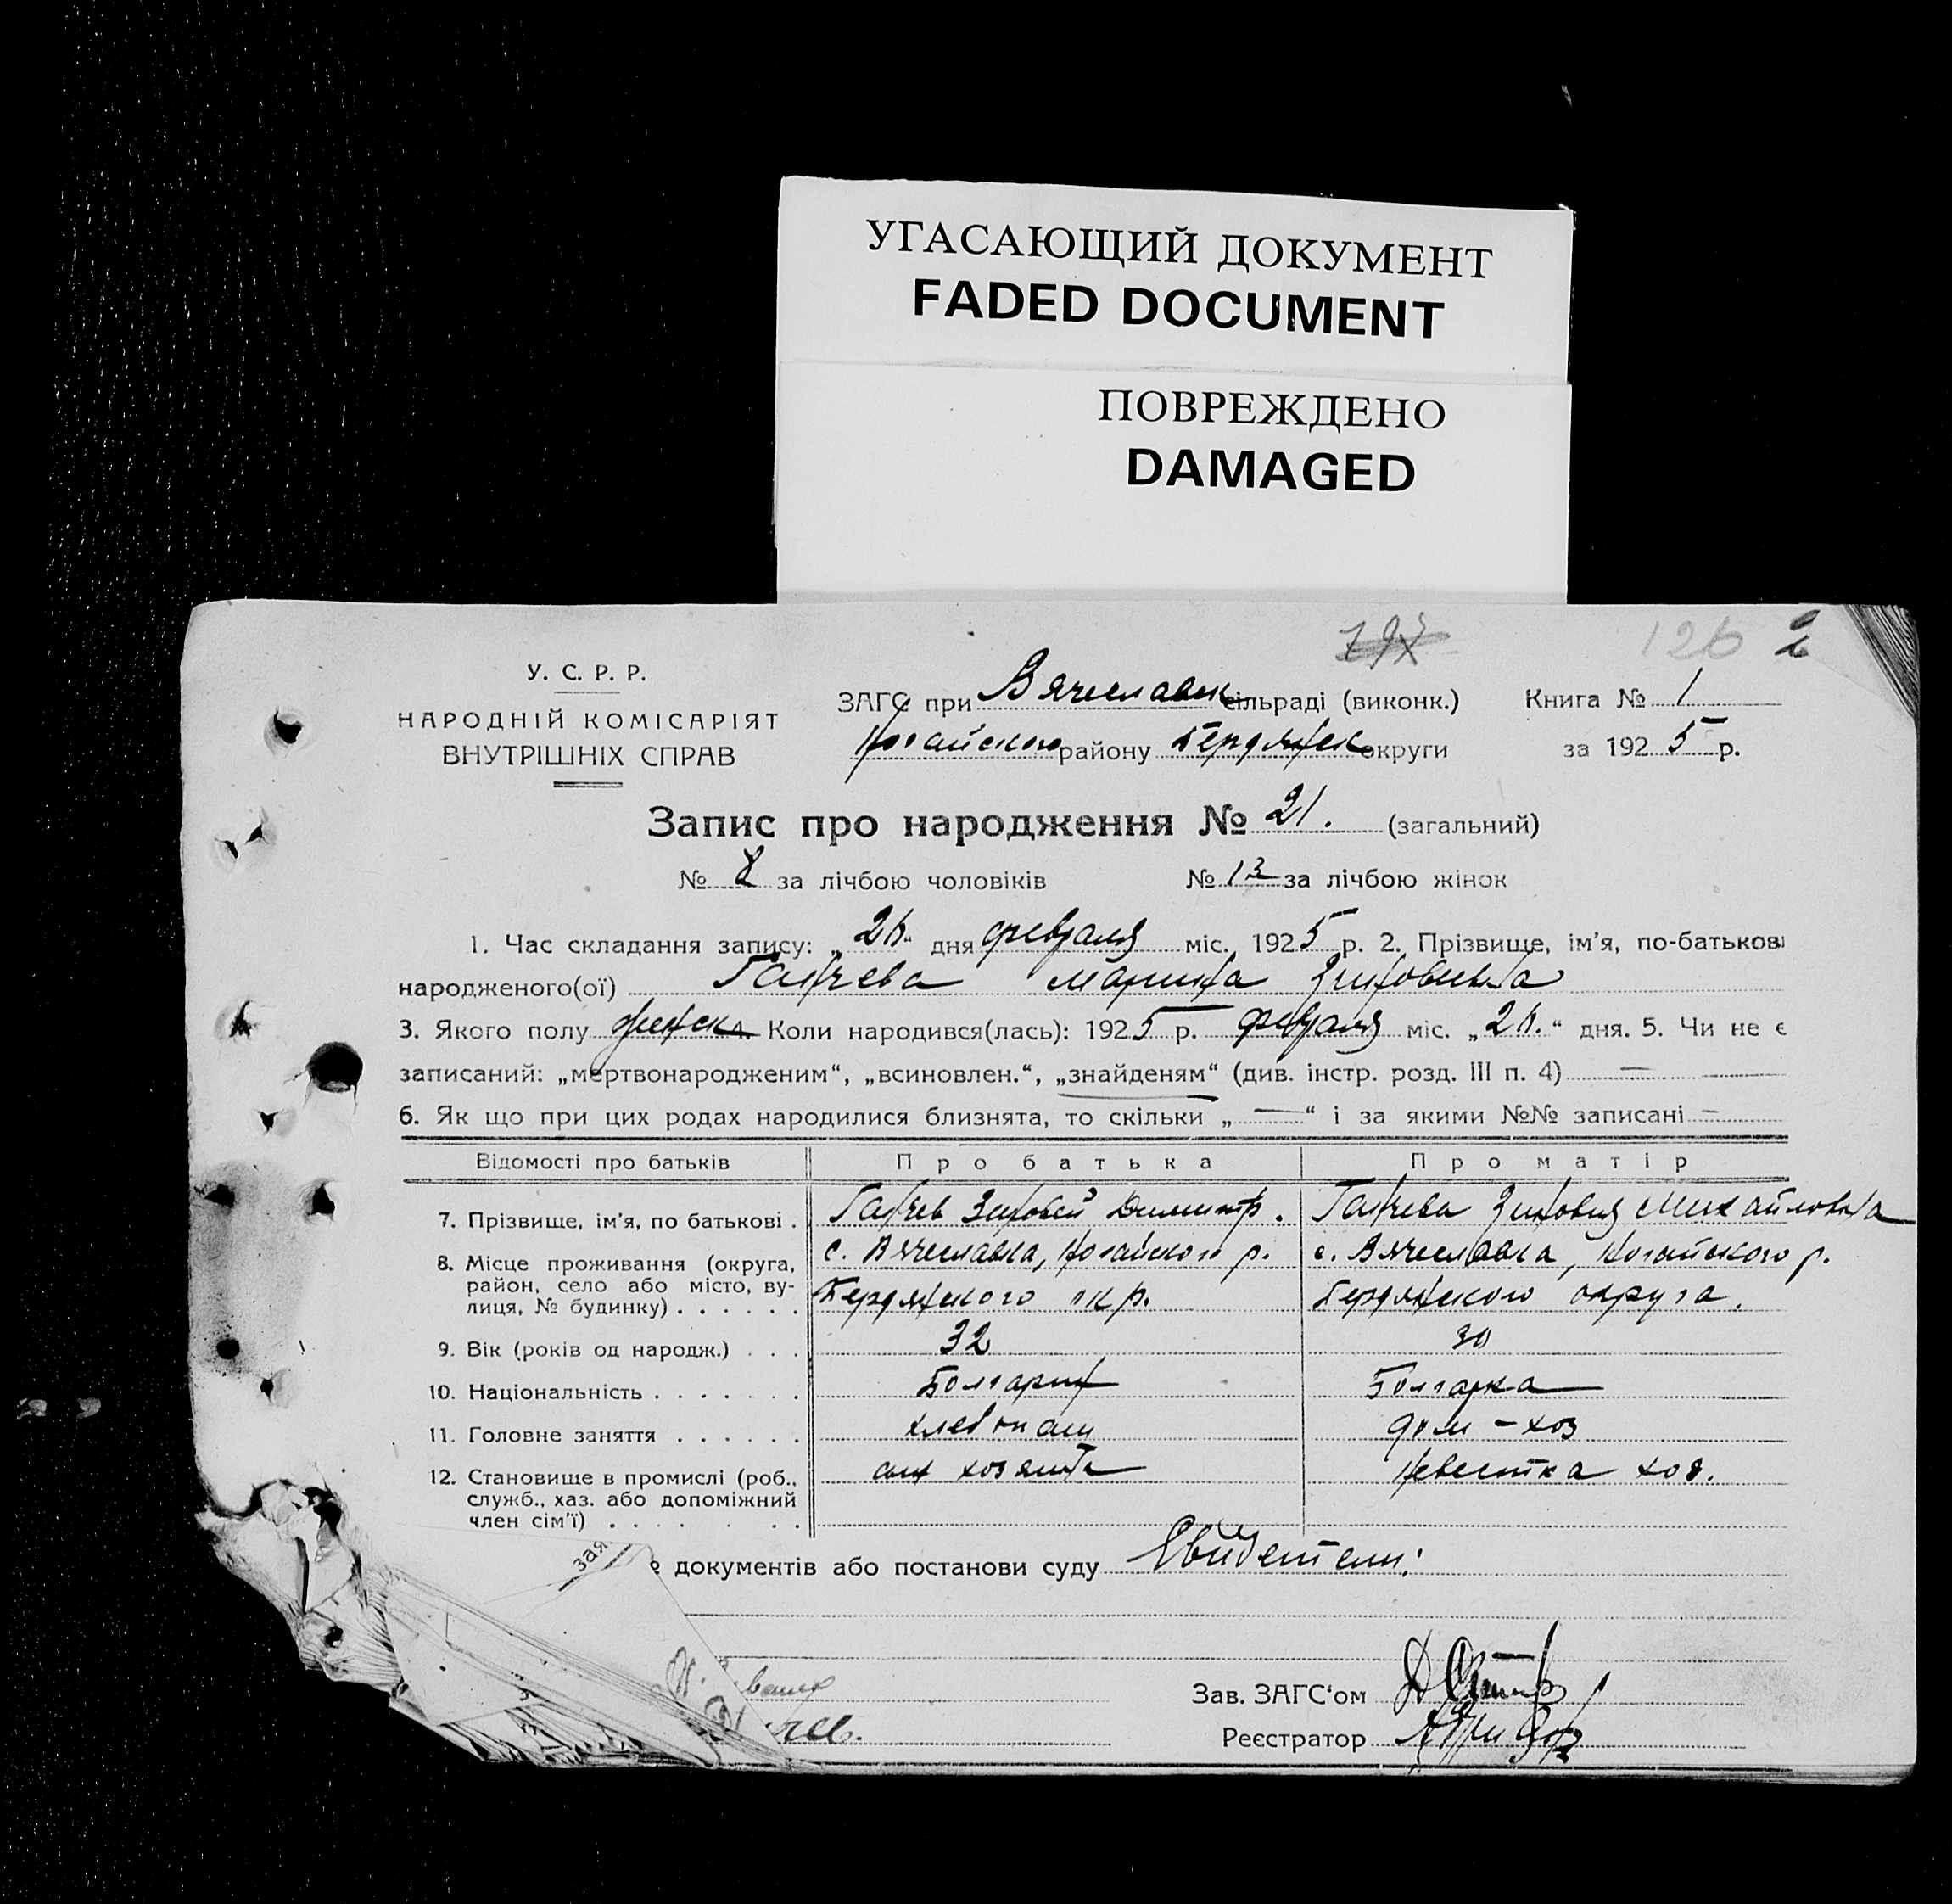 УГАСАЮЩИЙ ДОКУМЕНТ
FADED DOCUMENT
ПОВРЕЖДЕНО
DAMAGED
126 2
У. С. Р. Р.
НАРОДНІЙ КОМІСАРІЯТ
ВНУТРІШНІХ СПРАВ
ЗАГС при Вячеславск сільраді (виконк.) Книга № 1
Ногайского району Бердянск округи за 1925 р.
Запис про народження № 21. (загальний)
№ 8 за лічбою чоловіків № 13 за лічбою жінок
1. Час складання запису: „ " дня февраля міс. 1925 р. 2. Прізвище, ім'я, по-батькові
народженого(ої) Ганчева Марина Зиновьевна
3. Якого полу женск 4. Коли народився(лась): 1925 р. февраля міс. „ " дня. 5. Чи не є
записаний: „мертвонародженим", „всиновлен.", „знайденям" (див. інстр. розд. III п. 4) —
6. Як що при цих родах народилися близнята, то скільки „—" і за якими №№ записані —
Відомості про батьків Про батька Про матір
7. Прізвище, ім'я, по батькові . Ганчев Зиновей Димитр. Ганчева Зиновия Михайловна
8. Місце проживання (округа, район, село або місто, вулиця, № будинку) . . . . . . с. Вячеславка, Ногайского р. Бердянского окр. с. Вячеславка, Ногайского р. Бердянского округа.
9. Вік (років од народж.) . . . 32 30
10. Національність . . . . . . . Болгарин Болгарка
11. Головне заняття . . . . . . хлебопаш дом-хоз
12. Становище в промислі (роб., служб., хаз. або допоміжний член сім'ї) . . . . . . сын хозяина Невестка хоз.
документів або постанови суду Свидетели:
Зав. ЗАГС'ом
Реєстратор